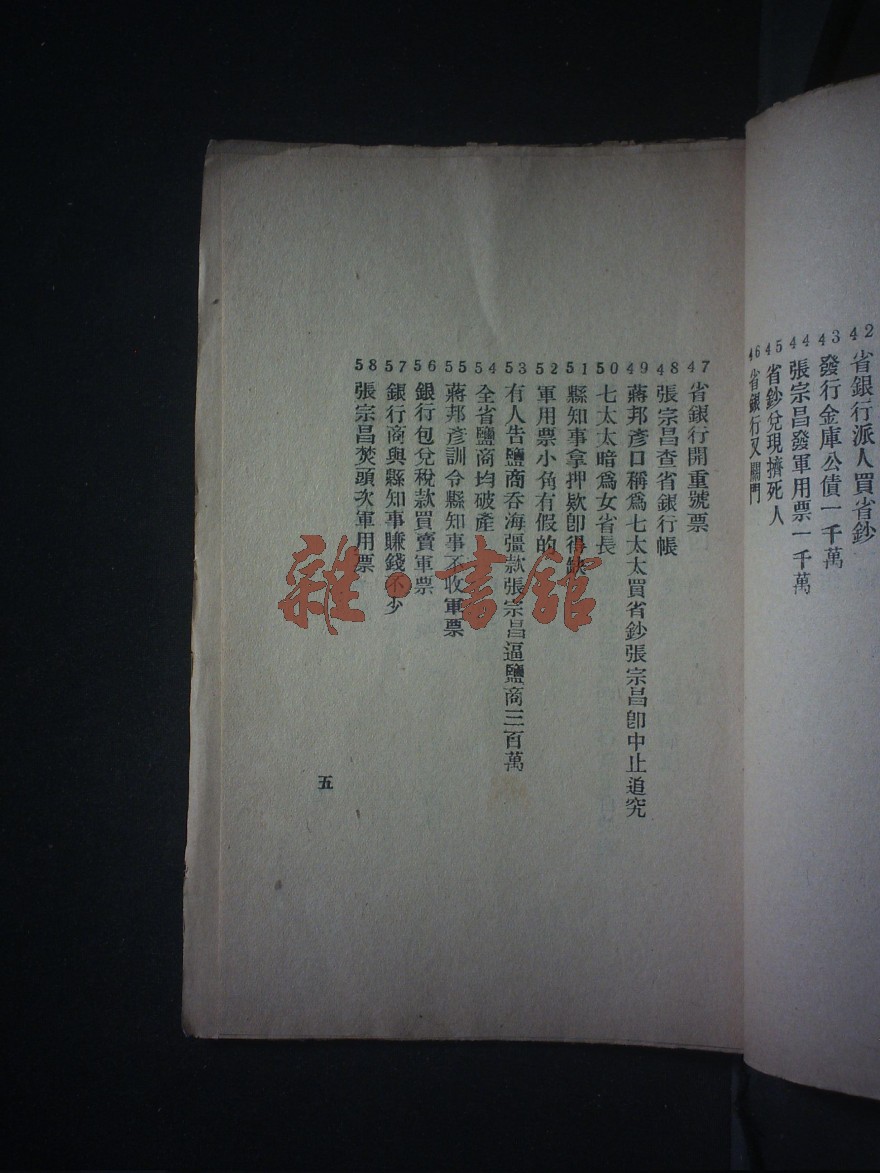 42 省銀行派人買省鈔
43 發行金庫公債一千萬
44 張宗昌發軍用票一千萬
45 省鈔兌現擠死人
46 省銀行又關門
47 省銀行開重號票
48 張宗昌查省銀行帳
49 蔣邦彥口稱爲七太太買省鈔張宗昌卽中止追究
50 七太太暗爲女省長
51 縣知事拿押欵卽得缺
52 軍用票小角有假的
53 有人告鹽商吞海彊款張宗昌逼鹽商三百萬
54 全省鹽商均破產
55 蔣邦彥訓令縣知事不收軍票
56 銀行包兌稅款買賣軍票
57 銀行商與縣知事賺錢不少
58 張宗昌焚頭次軍用票
五
雜·書館